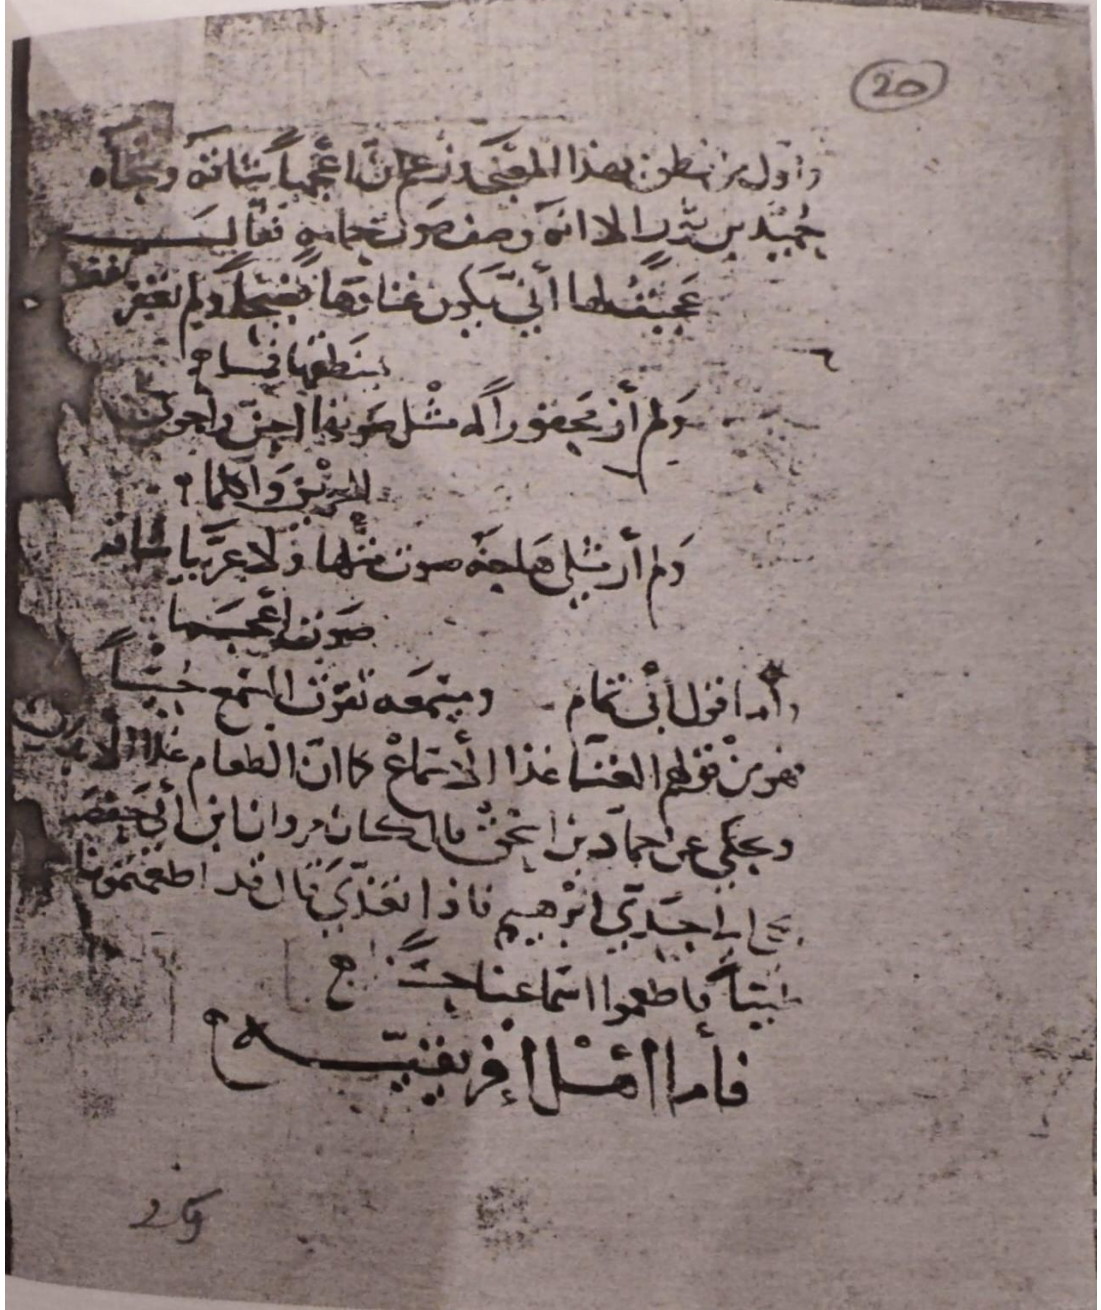 20
وأول من نطق بهذا المعنى وزعم أن أعجميا شاقه وشجاه
حميد بن ثور إلا أنه وصف صوت حمامة فقال
عجبت لها أنى يكون غناؤها فصيحا ولم تفغر
بمنطقها فما
ولم أر محقورا له مثل صوتها أحن وأجوى
للحزين وأكلما
ولم أر مثلي هاجه صوت مثلها ولا عربيا شاقه
صوت أعجما
وأما قول أبي تمام ومسمعة تقوت السمع حسنا
فهو من قولهم الغنا غذا الأسماع كما ان الطعام غذا
ويحكى عن حماد بن اسحق قال كان مروان بن أبي حفصة
إلى جدي ابرهيم فاذا تغدى قال قد اطعمتمونا
طيبا فاطعموا اسماعنا حسنا
فأما أهل إفريقية
29